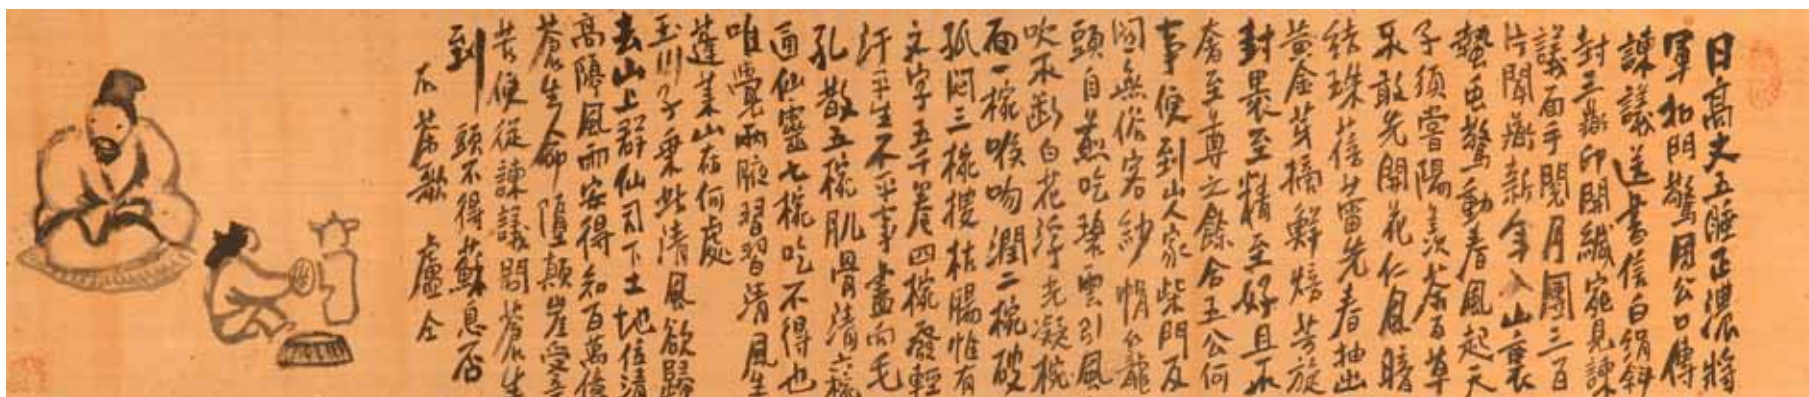 日高丈五睡正濃將
軍扣門驚周公口傳
諫議送書信白絹斜
封三道印開緘宛見諫
議面手閱月團三百
片聞道新年入山裏
蟄虫驚動春風起天
子須嘗陽羨茶百草
不敢先開花仁風暗
結珠蓓蕾先春抽出
黄金芽摘鮮焙芳旋
封裹至精至好且不
奢至尊之餘合王公何
事便到山人家柴門反
関無俗客紗帽龍
頭自煎吃碧雲引風
吹不斷白花浮光凝椀
面一椀喉吻潤二椀破
孤悶三椀搜枯腸惟有
文字五千卷四椀發輕
汗平生不平事盡向毛
孔散五椀肌骨清六椀
通仙靈七椀吃不得也
唯覺兩腋習習清風生
蓬萊山在何處
玉川子乗此清風欲歸
去山上群仙司下土地位清
高隔風雨安得知百萬億
蒼生命墮顛崖受辛
苦便從諫議問蒼生
到頭不得蘇息否
右茶歌 盧仝